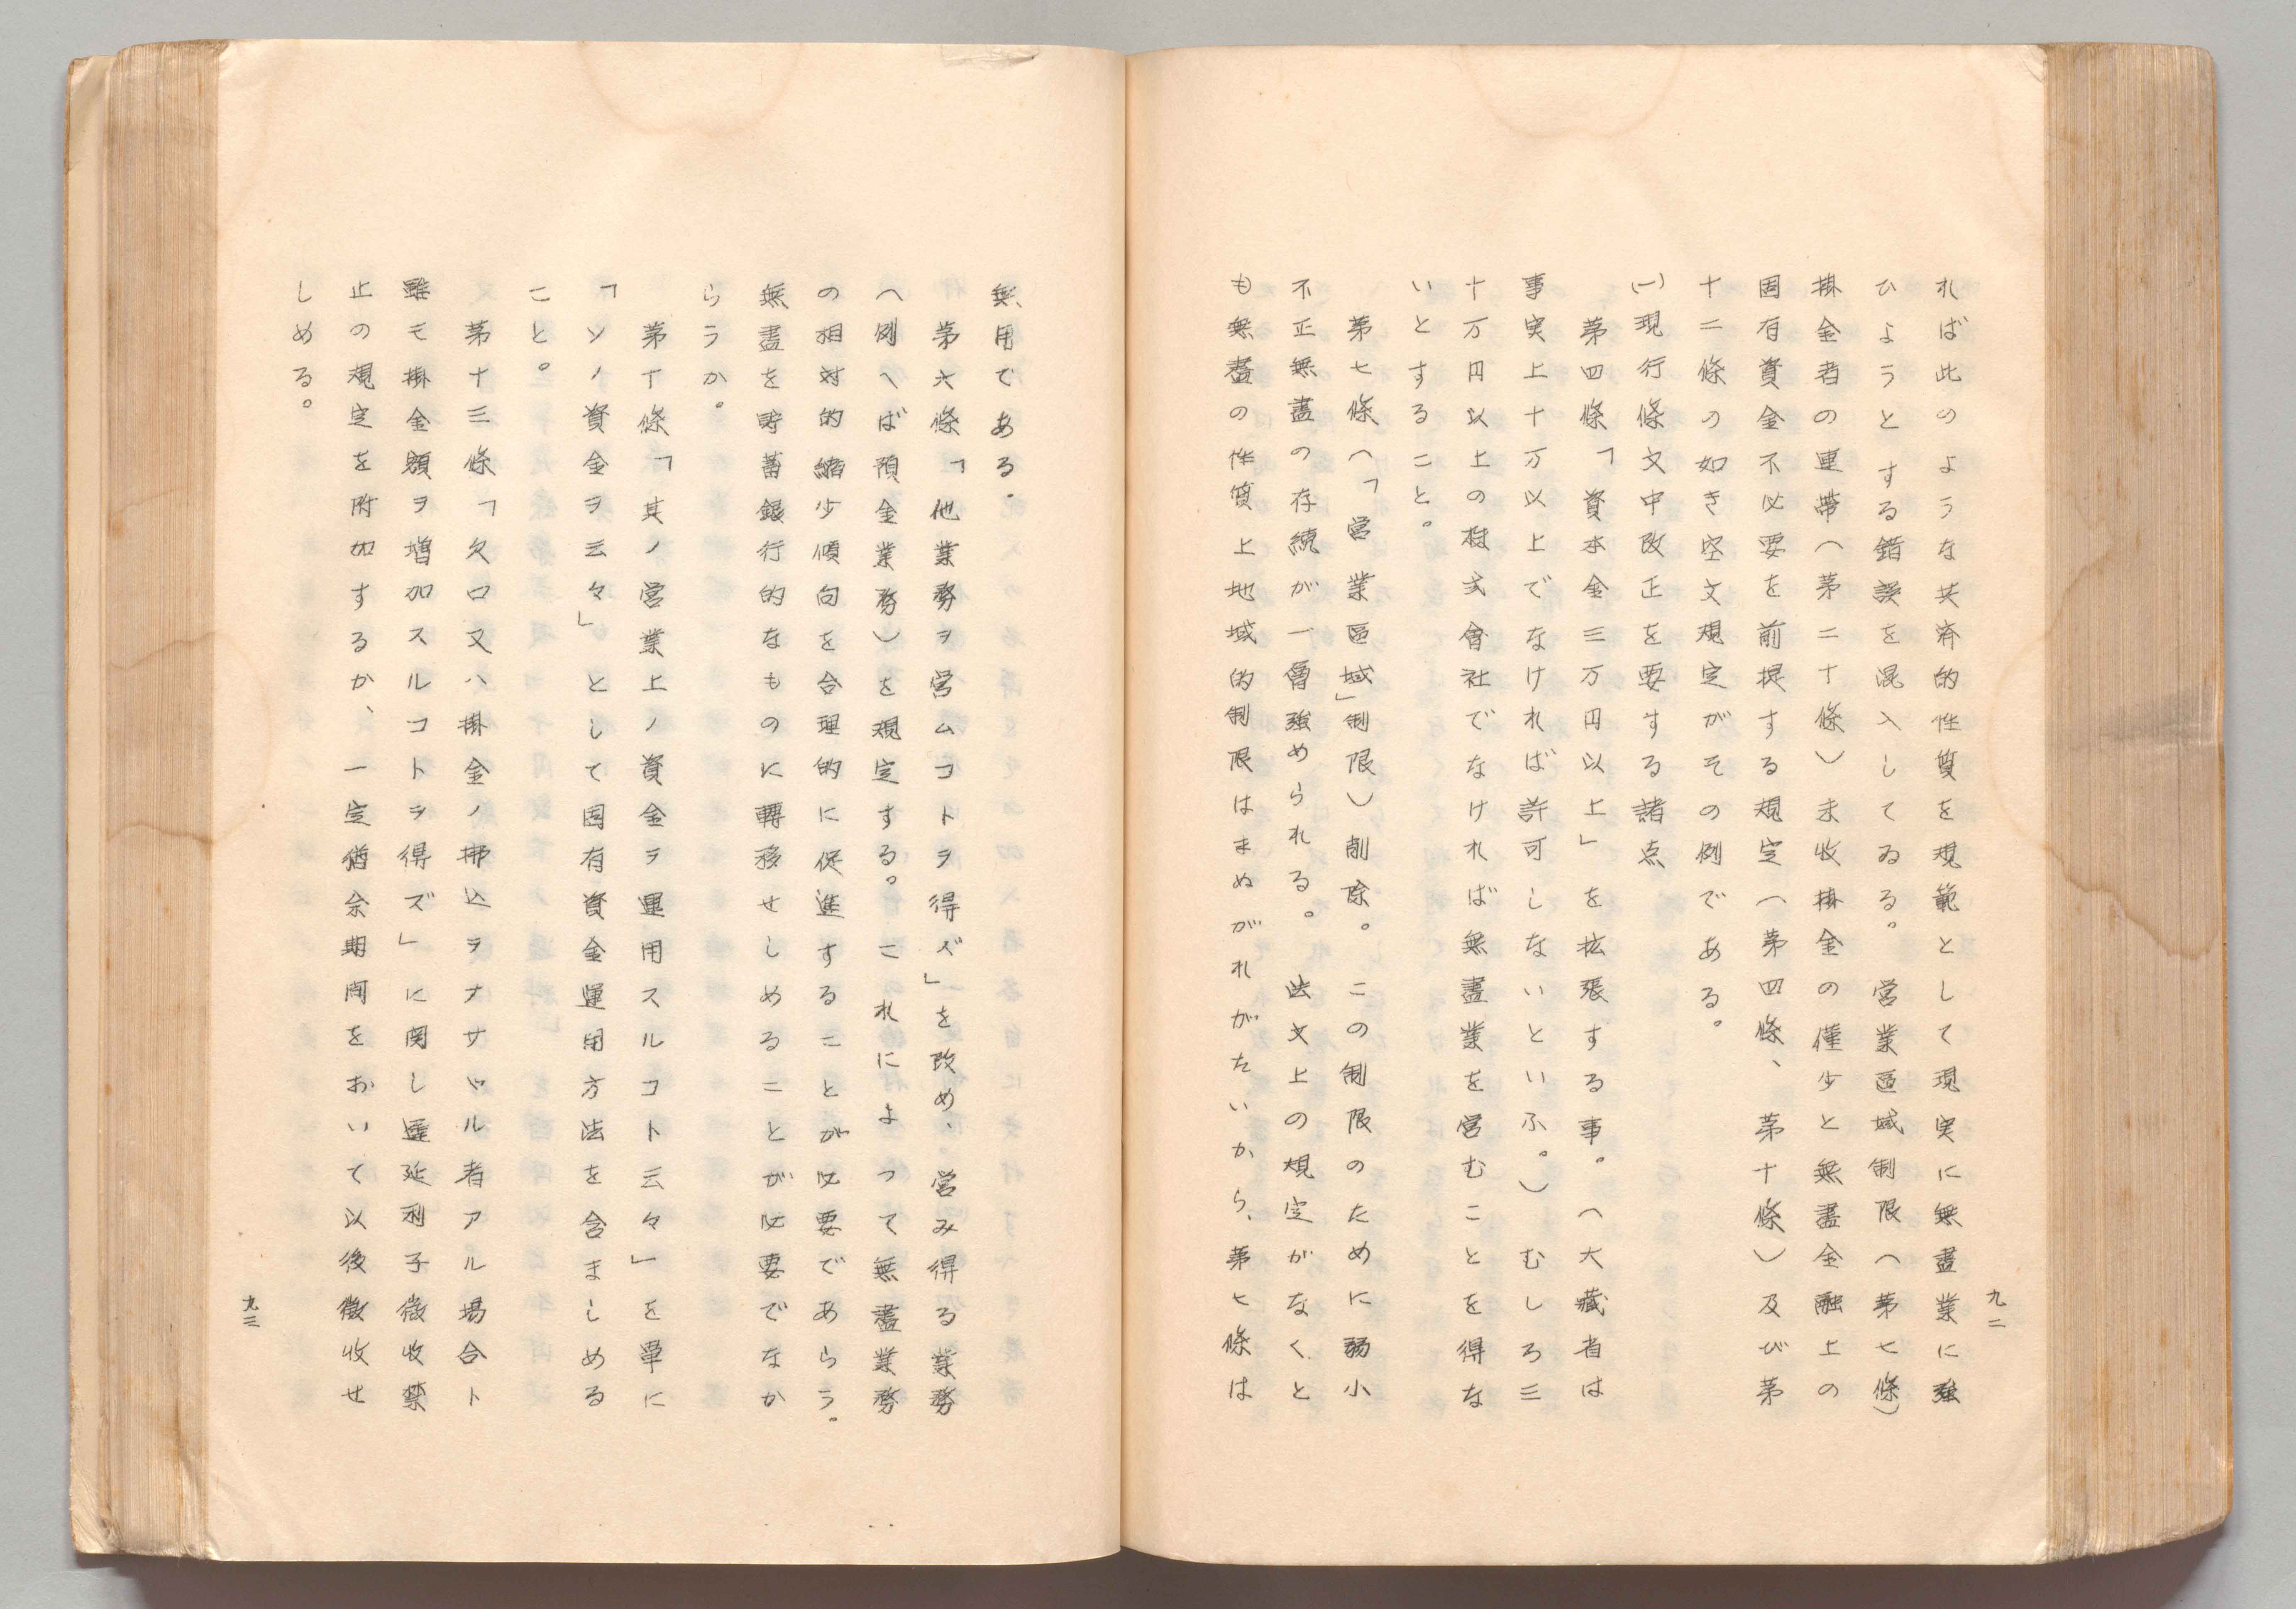 九二
れば此のような共済的性質を規範として現実に無盡業に強
ひようとする錯誤を混入してゐる。営業區域制限（第七條）
掛金者の連帶（第二十條）未收掛金の僅少と無盡金融上の
固有資金不必要を前提する規定（第四條、第十條）及び第
十二條の如き空文規定がその例である。
(一)現行條文中改正を要する諸点
第四條「資本金三万円以上」を拡張する事。（大藏省は
事実上十万以上でなければ許可しないといふ。）むしろ三
十万円以上の株式會社でなければ無盡業を営むことを得な
いとすること。
第七條（「営業區域」制限）削除。この制限のために弱小
不正無盡の存続が一層強められる。此文上の規定がなくと
も無盡の性質上地域的制限はまぬがれがたいから、第七條は
無用である。
第六條「他業務ヲ営ムコトヲ得ズ」を改め、営み得る業務
（例へば預金業務）を規定する。これによつて無盡業務
の相対的縮少傾向を合理的に促進することが必要であらう。
無盡を貯蓄銀行的なものに轉移せしめることが必要でなか
らうか。
第十條「其ノ営業上ノ資金ヲ運用スルコト云々」を單に
「ソノ資金ヲ云々」として固有資金運用方法を含ましめる
こと。
第十三條「欠口又ハ掛金ノ拂込ヲナサヾル者アル場合ト
雖モ掛金額ヲ増加スルコトヲ得ズ」に関し遲延利子徴收禁
止の規定を附加するか、一定猶余期間をおいて以後徴收せ
しめる。
九三